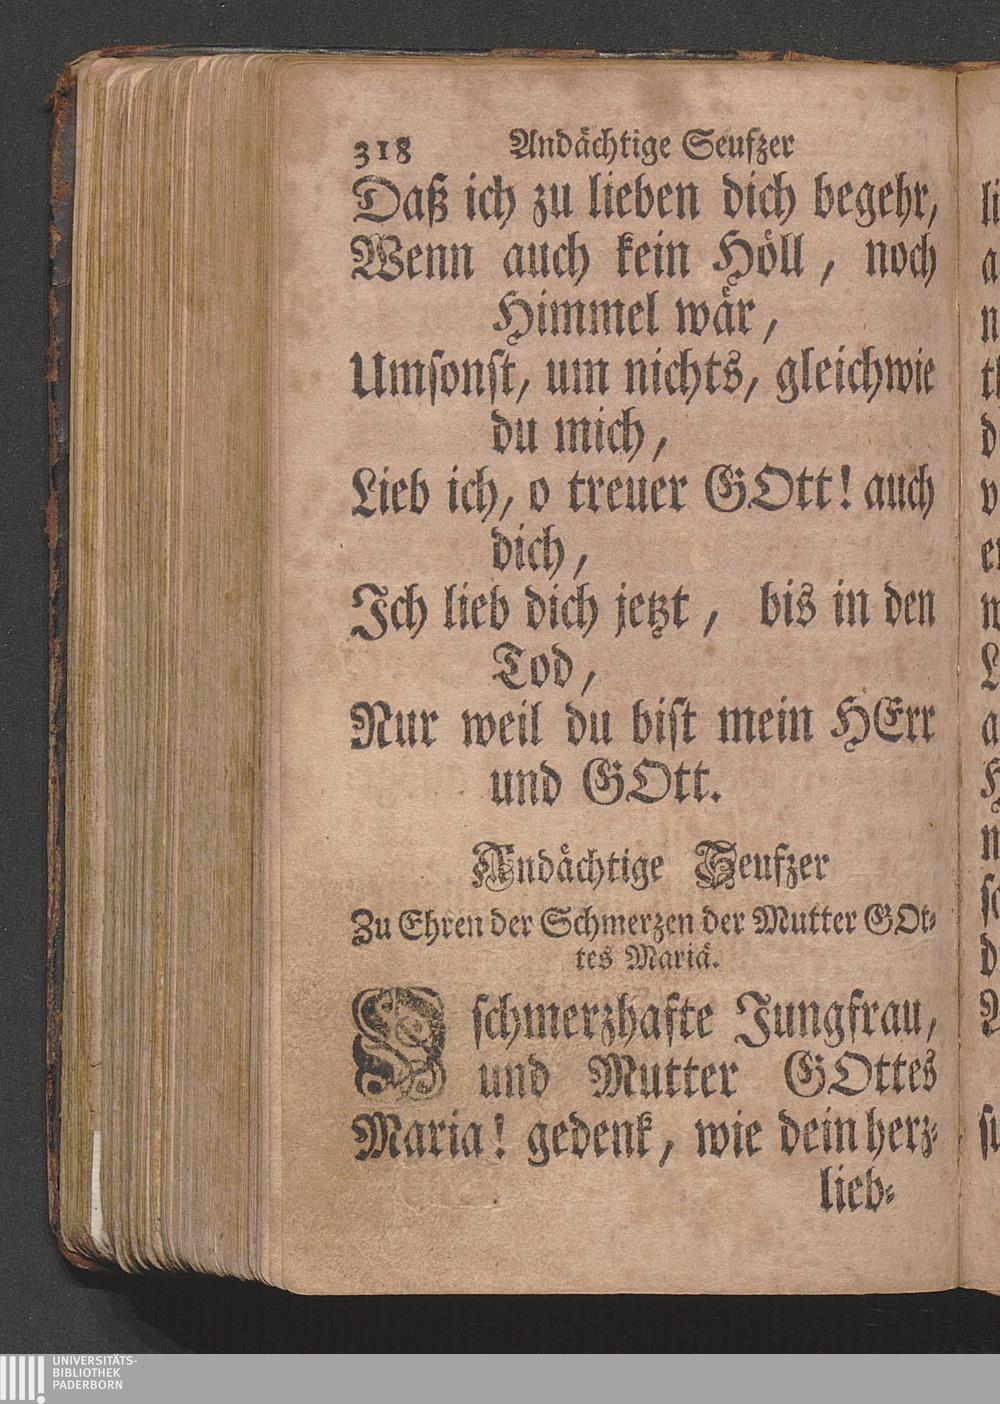 318 Andächtige Seufzer
Daß ich zu lieben dich begehr,
Wenn auch kein Höll, noch
Himmel wär,
Umsonst, um nichts, gleichwie
du mich,
Lieb ich, o treuer GOtt! auch
dich,
Ich lieb dich jetzt, bis in den
Tod,
Nur weil du bist mein HErr
und GOtt.
Andächtige Seufzer
Zu Ehren der Schmerzen der Mutter GOt-
tes Mariä.
O schmerzhafte Jungfrau,
und Mutter GOttes
Maria! gedenk, wie dein herz-
lieb-
UNIVERSITÄTS-
BIBLIOTHEK
PADERBORN